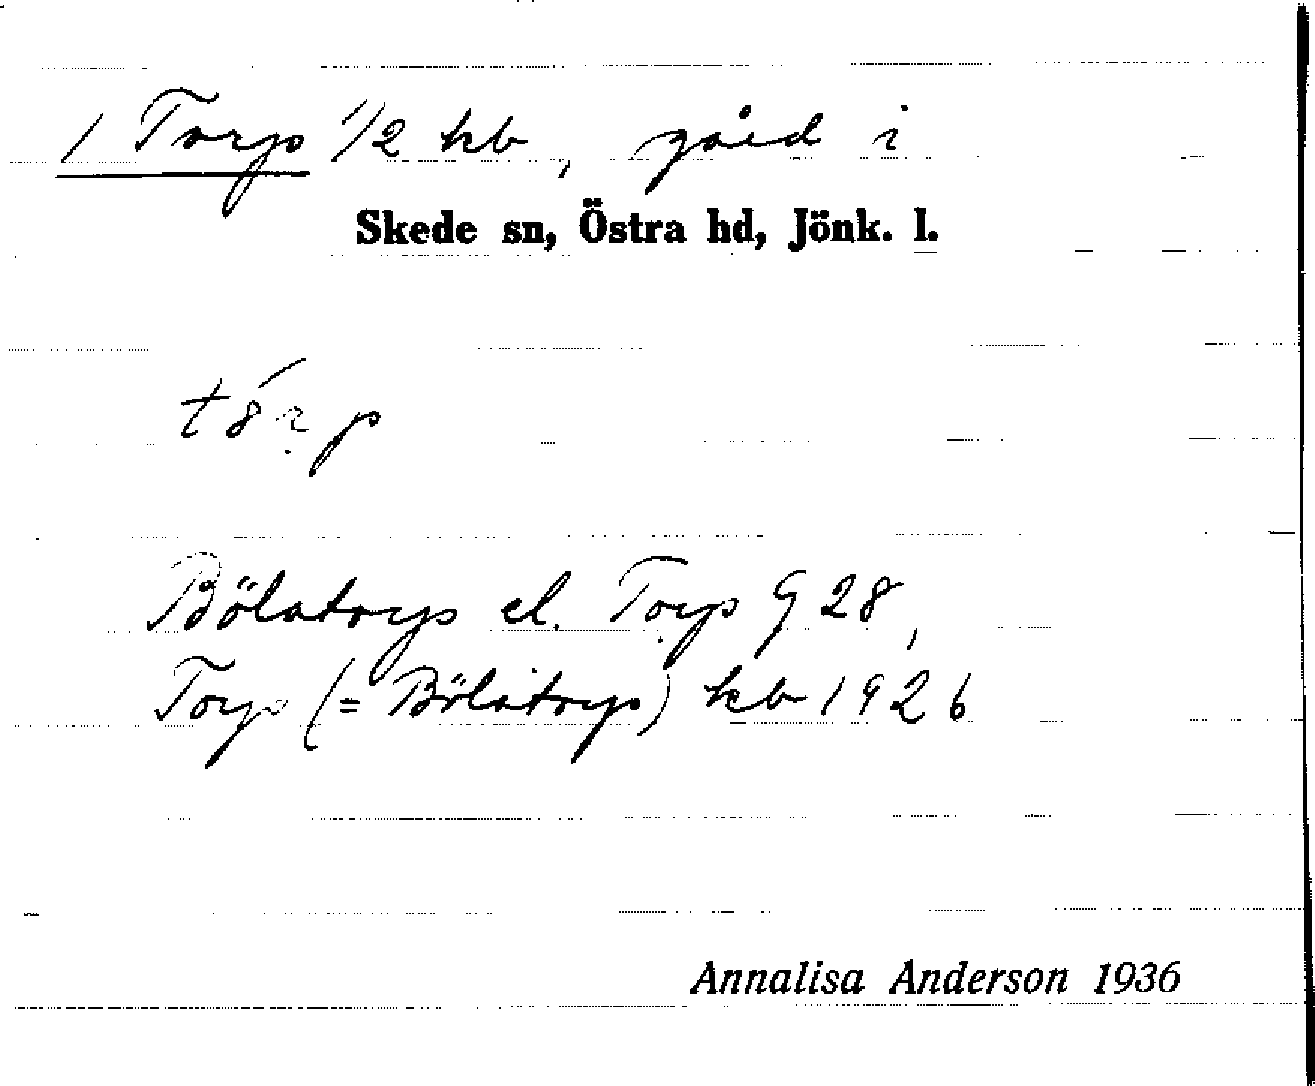 1 Torp 1/2 kb, gård i
Skede sn, Östra hd, Jönk. l.
Bölatorp el. Torp G 28,
Torp (= Bölatorp) kb 1926
Annalisa Anderson 1936